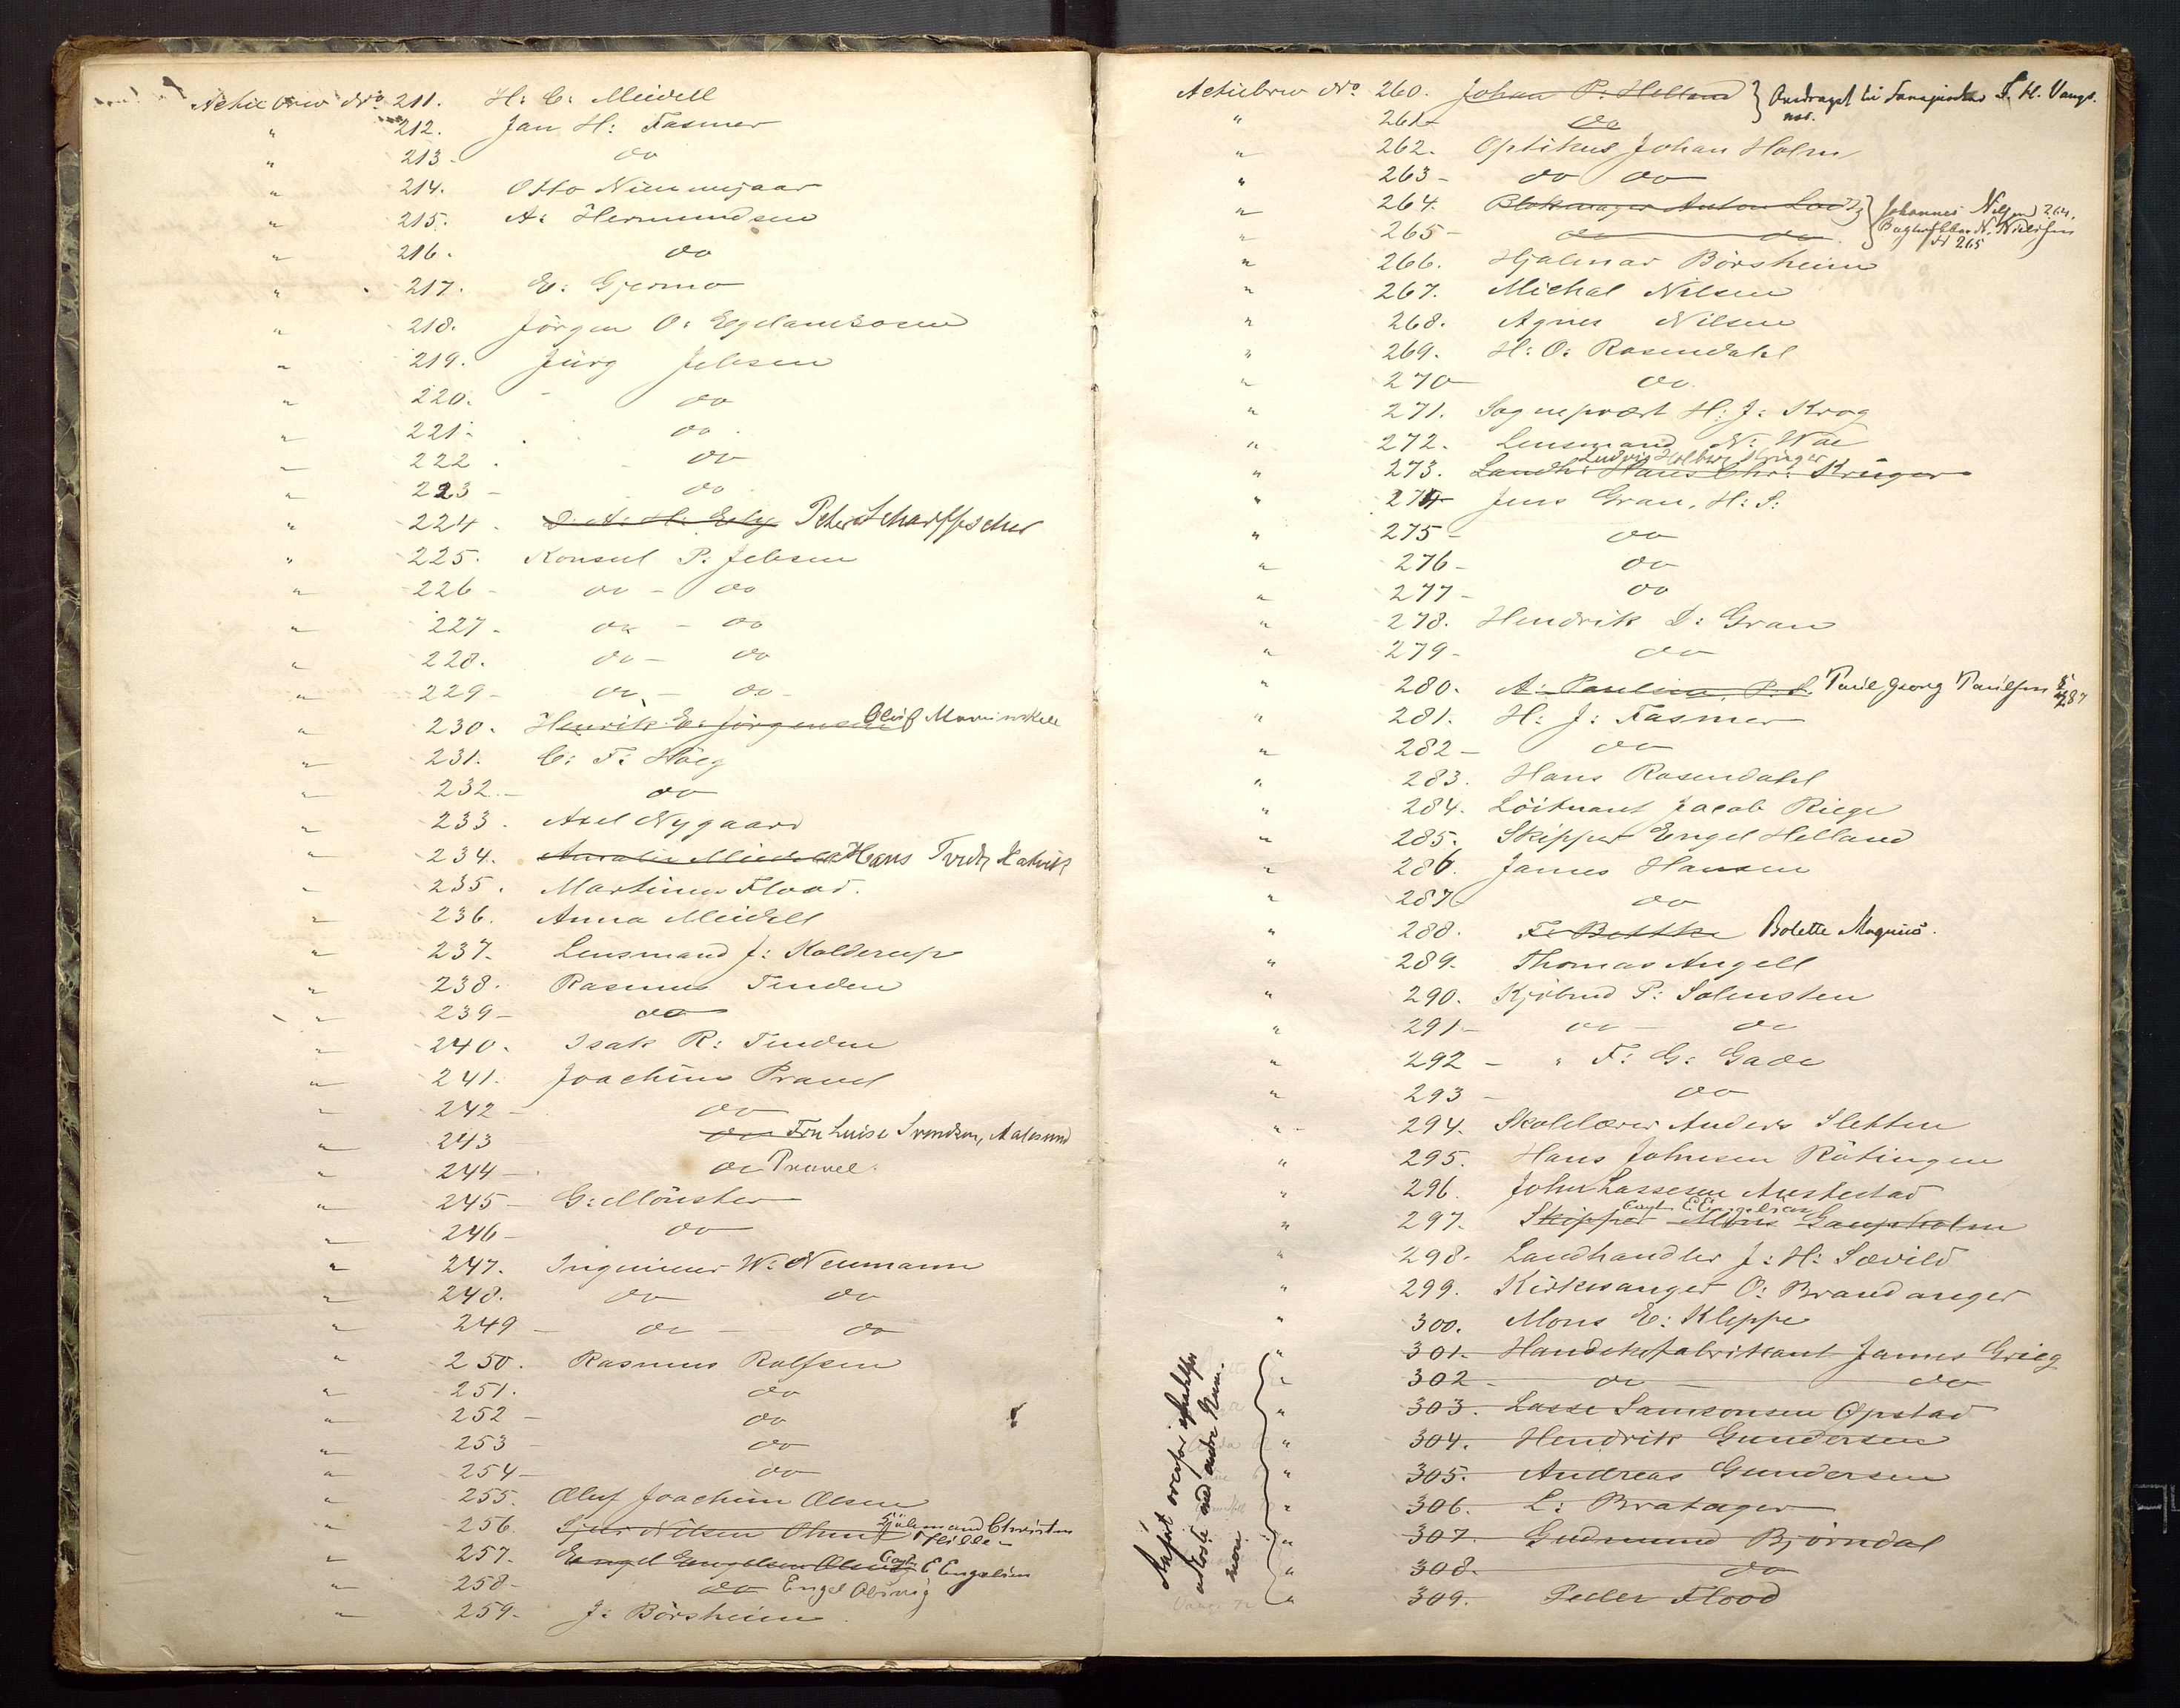 Actie brev No 211. H: C: Meidell
" 212. Jan H: Fasmer
" 213 - do
" 214. Otto Nimmejaar
" 215. A: Hermundsen
" 216. do
" 217. E: Gjermo
" 218. Jörgen O: Egdamsosen
" 219. Jürg Jebsen
" 220. do
" 221 - do
" 222. do
" 223 - do
" 224. D. A. H. Peter Scharffscher
" 225. Konsul P: Jebsen
" 226 - do - do
" 227. do - do
" 228. do - do
" 229 - do - do -
" 230. Henrik E: Jörgensen Oluf
" 231. C: F: Höeg
" 232. - do
" 233. Axel Nygaard
" 234. Amalie Meidell Hans Hatvik
" 235. Martinus Flood.
" 236. Anna Meidell
" 237. Lensmand J: Kolderup
" 238. Rasmus Tenden
" 239 - do
" 240. Isak R: Tenden
" 241. Joachim Pravel
" 242 - do
" 243 do Fru Luise Svendsen, Aalesund
" 244 - do Pravel.
" 245 - G: Mönster
" 246 - do
" 247. Ingenieur W: Neumann
" 248. do do
" 249 - do - do
" 250. Rasmus Rolfsen
" 251. do
" 252 - do
" 253 - do
" 254 - do
" 255. Oluf Joachim Olsen
" 256. Sjur Nilsen Christen Hille -
" 257. Engel Engelsen Capt. E Engelsen
" 258 - do Engel Alsvig
" 259 - J: Börsheim
Actiebrev No 260. Johan P. Helland } Overdraget til S. H. Vangs-
" 261 - do nes.
" 262. Optikus Johan Holm
" 263 - do do
" 264. Blokmager Anton } Johannes 264.
" 265 - do do. N. Nielsen No 265
" 266. Hjalmar Börsheim
" 267. Michal Nilsen
" 268. Agnes Nilsen
" 269. H: O: Rosendahl
" 270 - do
" 271. Sognepræst H: J: Krog
" 272. Lensmand N: Wae
" 273. Landh: Hans Chr: Krüger Ludvig Holberg Krüger
" 274 - Jens Gran, H: S:
" 275 - do
" 276 - do
" 277 - do
" 278. Hendrik D: Gran
" 279 - do
" 280. A: Paulsen, P. S. Paul Georg Paulsen
" 281. H: J: Fasmer
" 282 - do
" 283. Hans Rosendahl
" 284. Löitnant Jacob Riege
" 285. Skipper Engel Helland
" 286. James Hansen
" 287 do
" 288. F: Bettke Bolette Magnus.
" 289. Thomas Angell
" 290. Kjöbmd P: Solensten
" 291 - do - do
" 292 - " F: G: Gade
" 293 - do
" 294. Skolelærer Anders Sletten
" 295. Hans Johnsen Rötingen
" 296. John Lassesen Austestad
" 297. Skipper Mons Gaupholm Capt. E Engelsen
" 298. Landhandler J: H: Sævild
" 299. Kirkesanger O: Brandanger
" 300. Mons E: Kleppe
" 301. Handskefabrikant James Grieg
" 302 - do - do
" 303. Lasse Samsonsen Opstad
" 304. Hendrik Gundersen
" 305. Andreas Gundersen
" 306. L: Bratager
" 307. Gudmund Björndal
" 308. do
" 309. Peder Flood
Anfört ovenfor
med andre Num-
mere